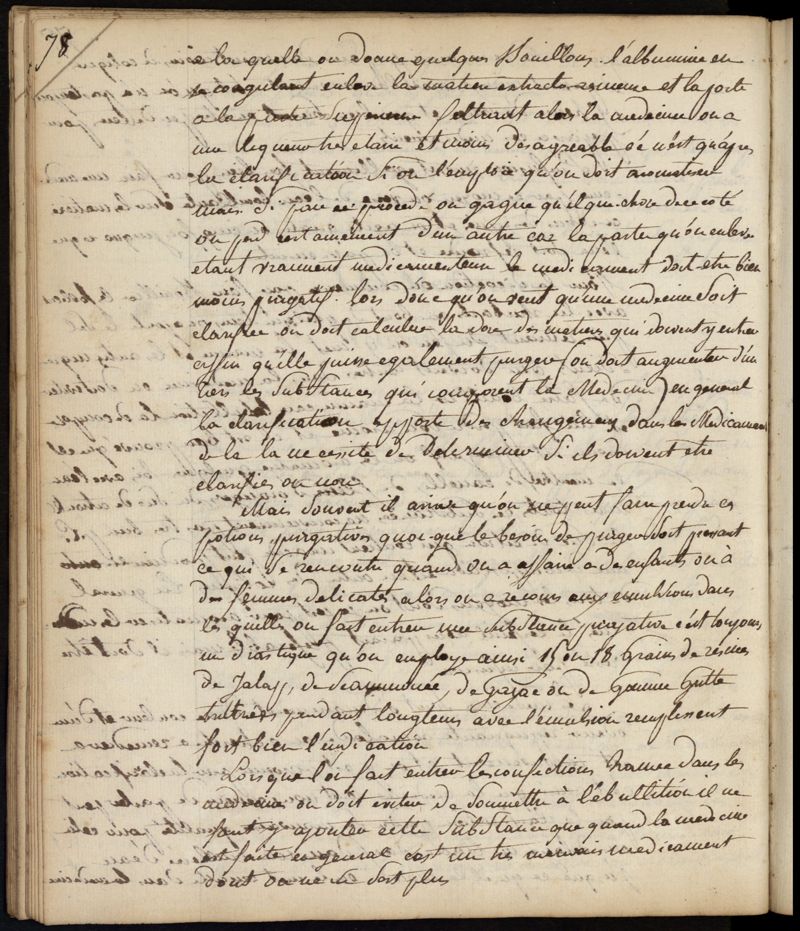 78
a la quelle on donne quelques Bouillons. l'albumine en
se coagulant enleve la matiere extracto resineuse et la porte
a la partie Superieure filtrant alors la medecine on a
une liqueur tres claire et moins desagreable ce n'est qu'apres
la clarification Si on l'emploie qu'on doit aromatiser
mais Si par ce procedé on gagne quelque chose de ce coté
on perd certainement d'un autre car la partie qu'on enleve
etant vraiment medicamenteuse le medicament doit etre bien
moins purgatif. lors donc qu'on veut qu'une medecine Soit
clarifiée on doit calculer la dose des matieres qui doivent y entrer
affin quelle puisse egalement purger (on doit augmenter d'un
tiers les Substances qui composent la Medecine) en general
la clarification apporte des changemens dans les Medicamens
de la la necessité de Determiner Si ils doivent etre
clarifiés ou non
Mais Souvent il arrive qu'on ne peut faire prendre ces
potions purgatives quoi que le besoin de purger Soit pressant
ce qui Se rencontre quand on a affaire a des enfants ou à
des femmes delicates alors on a recours aux emulsions dans
les quelles on fait entrer une Substance purgative c'est toujours
un drastique qu'on employe ainsi 15 ou 18 grains de resines
de Jalap, de Scammonée, de Gayac ou de Gomme Gutte
triturés pendant longtems avec l'émulsion remplissent
fort bien l'indication
Lorsque l'on fait entrer les confections hamec dans les
medecines on doit eviter de Soumettre à l'ébullition il ne
faut y ajouter cette Substance que quand la medecine
est faite en general c'est un tres mauvais medicament
dont on ne Se Sert plus